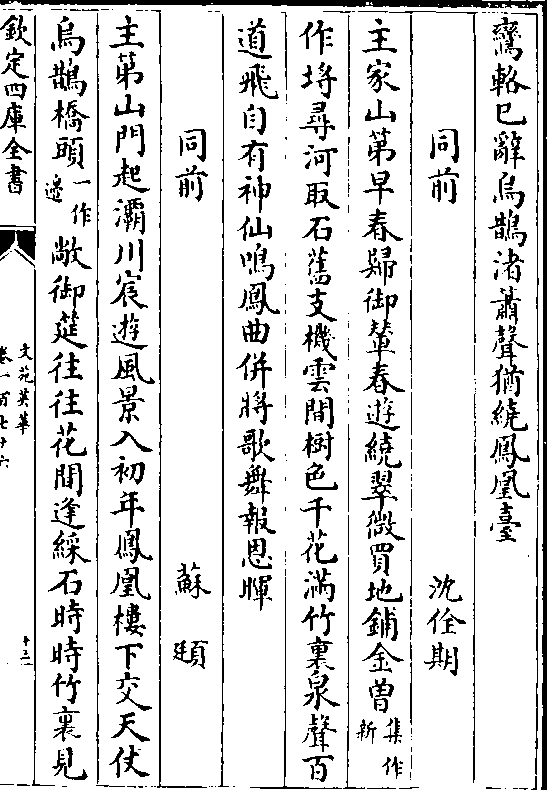 鸞輅已辭烏鵲渚蕭聲猶繞鳳凰臺
同前 沈佺期
主家山第早春歸御輦春遊繞翠微買地鋪金曽集作新
作埒尋河取石舊支機雲間樹色千花滿竹裏泉聲百
道飛自有神仙鳴鳳曲併將歌舞報恩暉
同前 蘇頲
主第山門起灞川宸遊風景入初年鳳凰樓下交天仗
烏鵲橋頭一作邉敞御筵往往花間逢綵石時時竹裏見
欽定四庫全書
文苑英華
卷一百七十六
十三